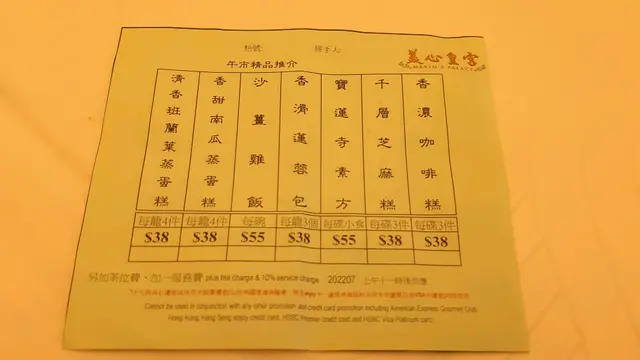 枱號:
經手人:
美心皇宮
MAXIM'S PALACE
午市精品推介
香濃咖啡糕
千層芝麻糕
寶蓮寺素方
香滑蓮蓉包
沙薑雞飯
香甜南瓜蒸蛋糕
清香班蘭葉蒸蛋糕
每籠4件 每籠4件 每碗 每籠3個 每碟小食 每碟3件 每碟3件
$38 $38 $55 $38 $55 $38 $38
另加茶位費、加一服務費 plus tea charge & 10% service charge 202207 上午十一時後供應
Cannot be used in conjunction with any other promotion and credit card promotion including American Express Gourmet Club,
Hong Kong Hang Seng enjoy credit card, HSBC Premier credit card and HSBC Visa Platinum card.